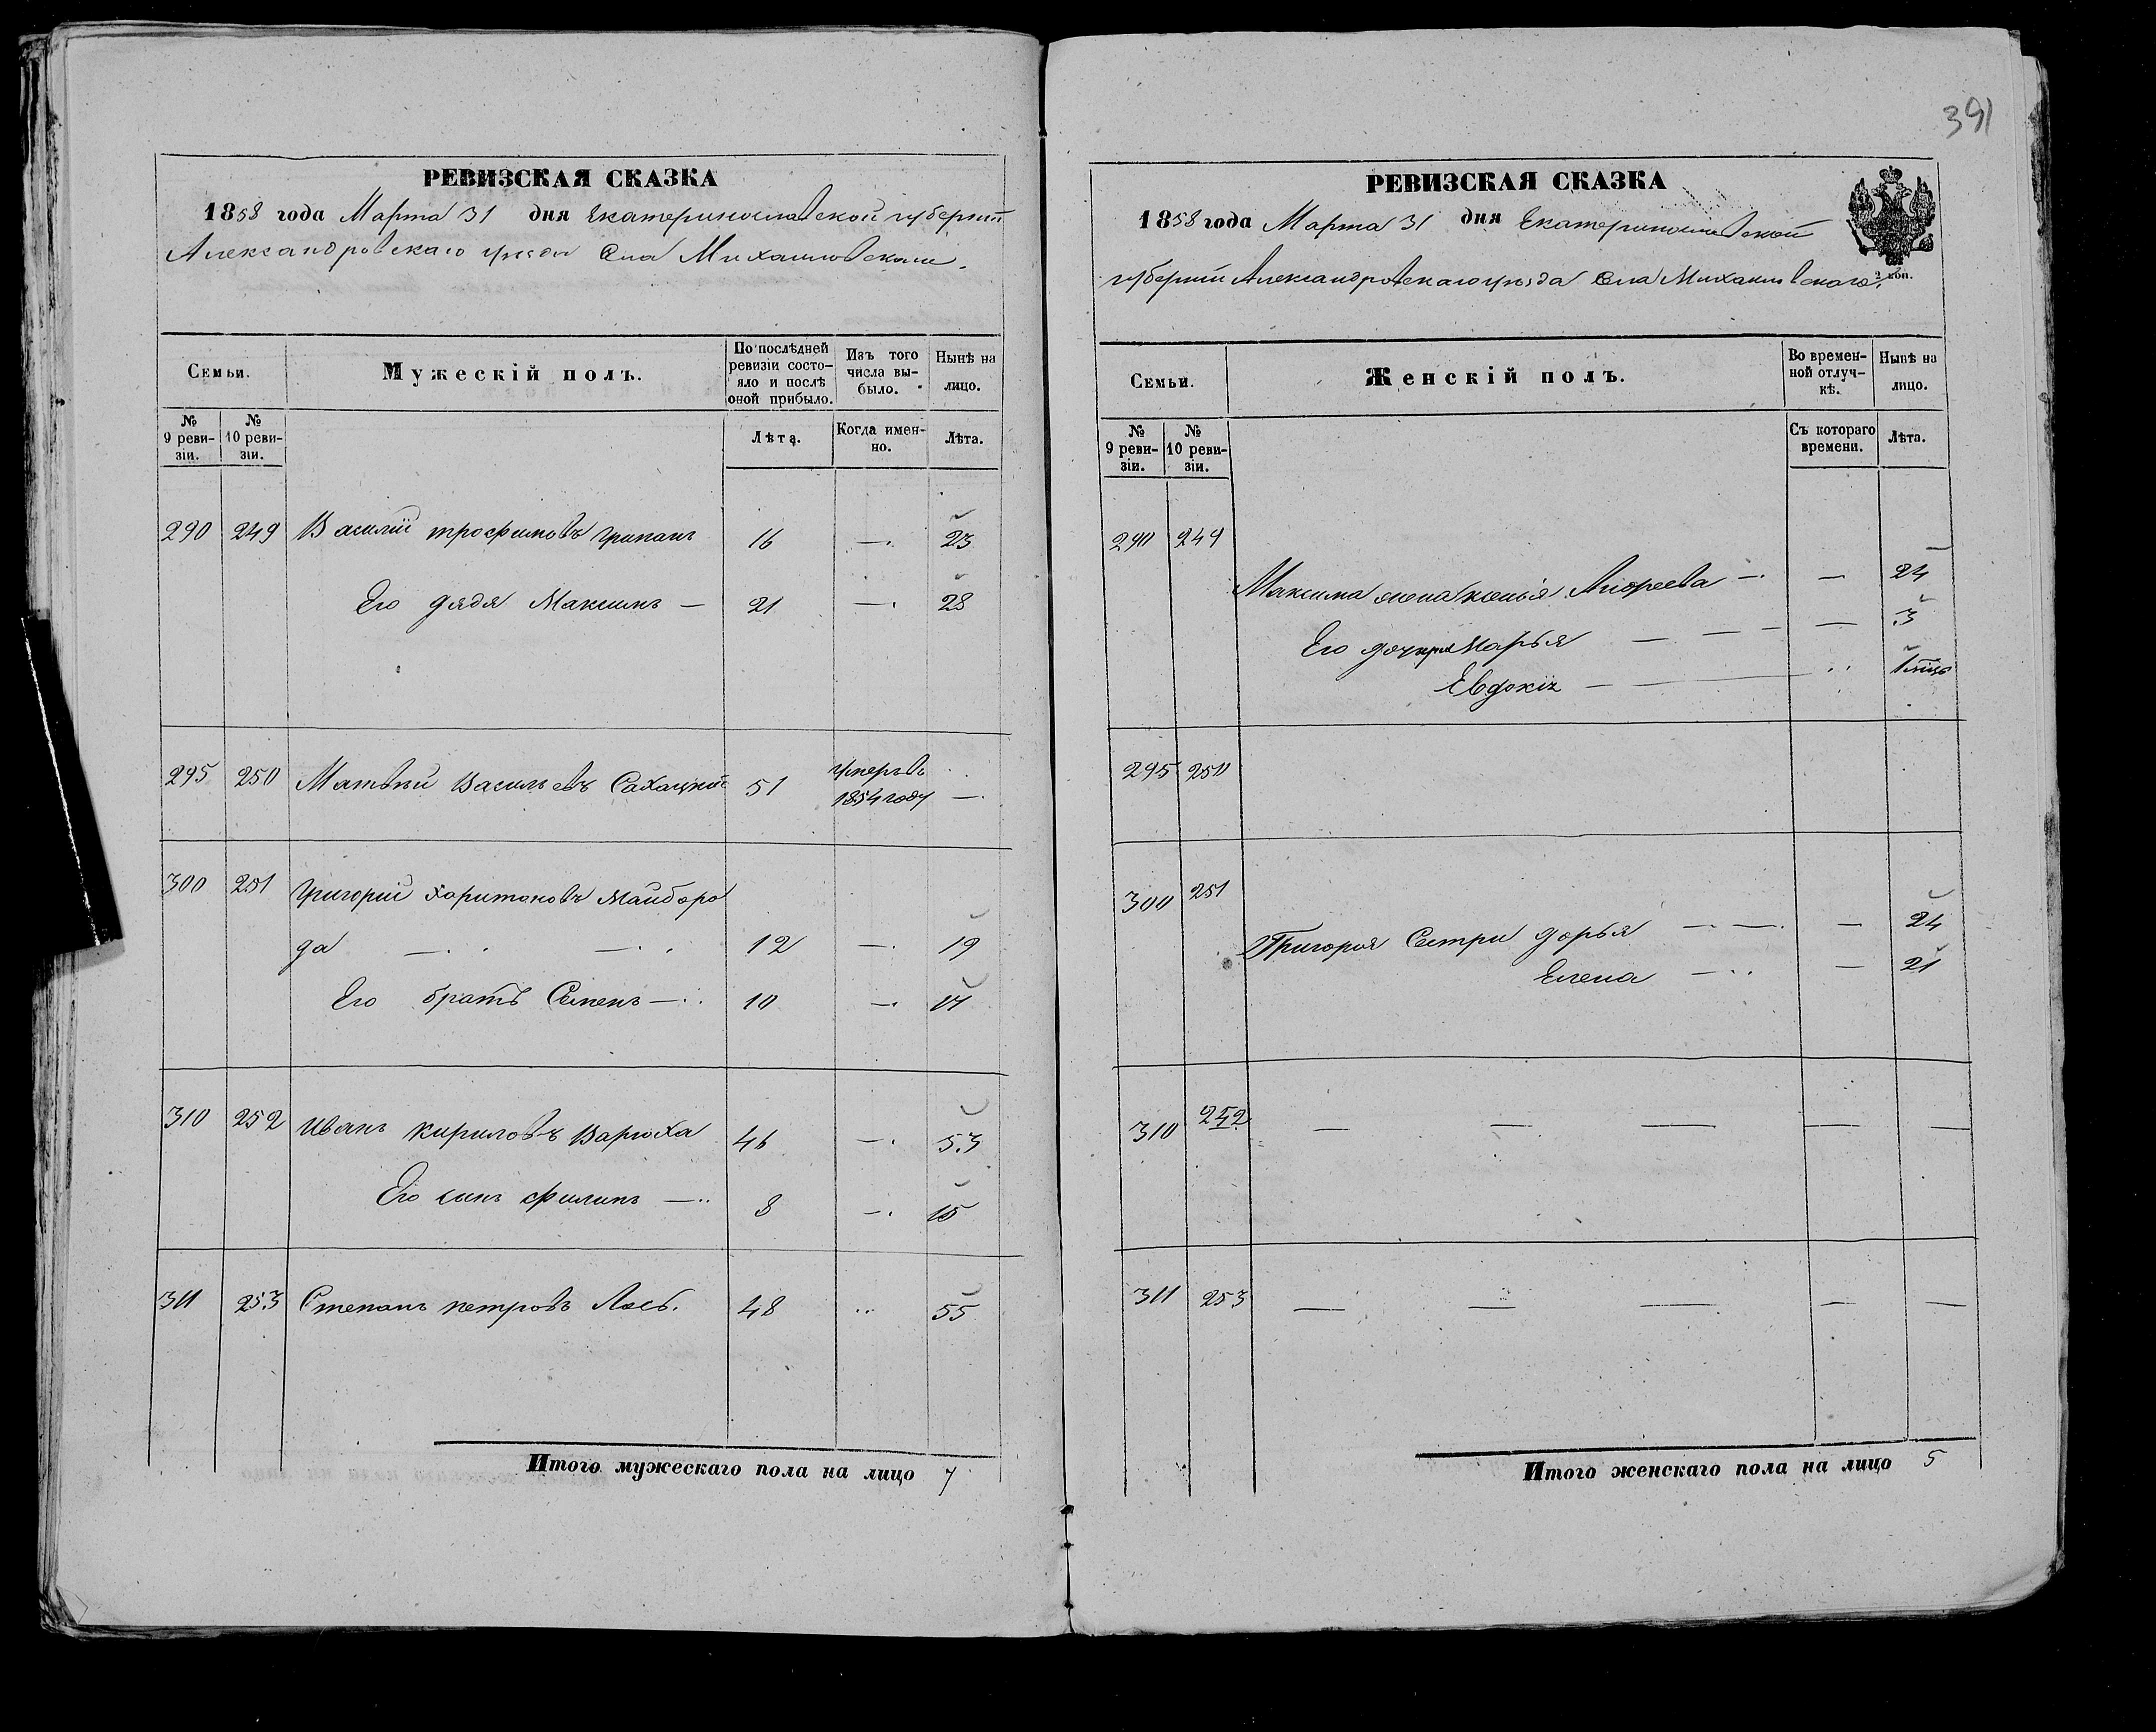 РЕВИЗСКАЯ СКАЗКА
1858 года Марта 31 дня Екатеринославской губернии
Александровскаго уезда Села Михаиловскаго.
Семьи.
Мужескій полъ.
По послѣдней ревизіи состояло и послѣ оной прибыло.
Изъ того числа выбыло.
Нынѣ на лицо.
№ 9 ревизіи.
№ 10 ревизіи.
Лѣта.
Когда именно.
Лѣта.
290 249 Василій трофимовъ 16 —. 23
Его дядя Максимъ — 21 —. 28
295 250 Матвѣй Васильевъ Сахацкій 51 умеръ въ 1854 году —.
300 251 Григорій Харитоновъ Майборо
да 12 —. 19
Его братъ Семенъ —.. 10 —. 17
310 252 Иванъ Кириловъ Варюха 46 —. 53
Его синъ Филипъ —.. 8 —. 15
311 253 Степанъ петровъ Лось. 48 .. 55
Итого мужескаго пола на лицо 7
391
РЕВИЗСКАЯ СКАЗКА
1858 года Марта 31 дня Екатеринославской
губерніи Александровскаго уѣзда Села Михаиловскаго.
2 коп.
Семьи.
Женскій полъ.
Во временной отлучкѣ.
Нынѣ на лицо.
№ 9 ревизіи.
№ 10 ревизіи.
Съ котораго времени.
Лѣта.
290 249
Максима жена Андреева —. — 24
Его дочери Марья — — — — 3
Евдокія — .. 1 мѣць
295 250
300 251
Григорія Сестри дарья — —. — 24
Елена — .. — 21
310 252 — — — — —
311 253 — — — — —
Итого женскаго пола на лицо 5